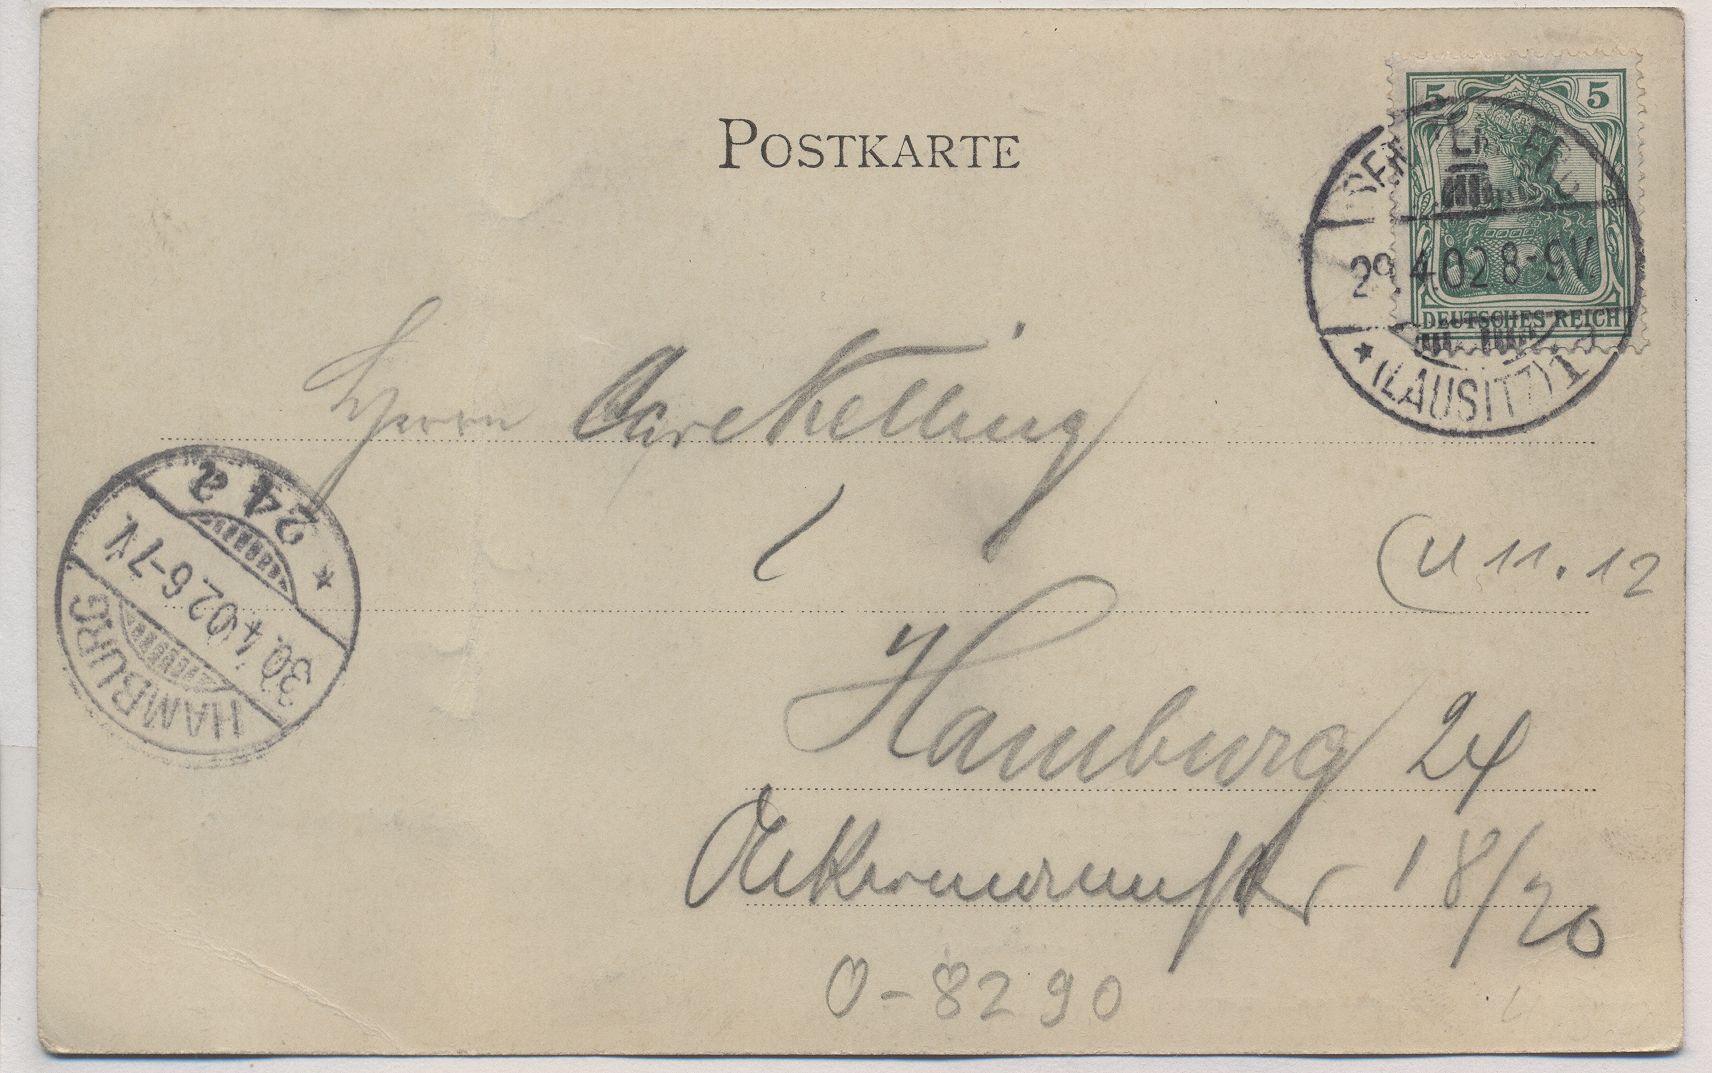 POSTKARTE
5 5
DEUTSCHES REICH
29.4.02 8-9V.
* (LAUSITZ) 1
Herrn Nelling
24 a *
30.4.02 6-7 V.
HAMBURG
11.12
Hamburg 24
Ackermannstr 18/20
O-8290